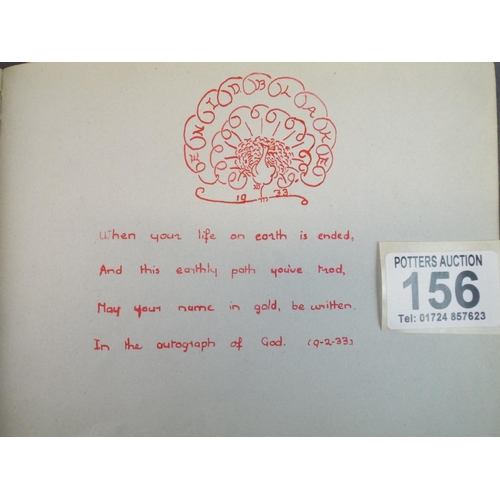 ENID BLAKE
1933
When your life on earth is ended,
And this earthly path you've trod,
May your name in gold, be written.
In the autograph of God. (9-2-33)
POTTERS AUCTION
156
Tel: 01724 857623